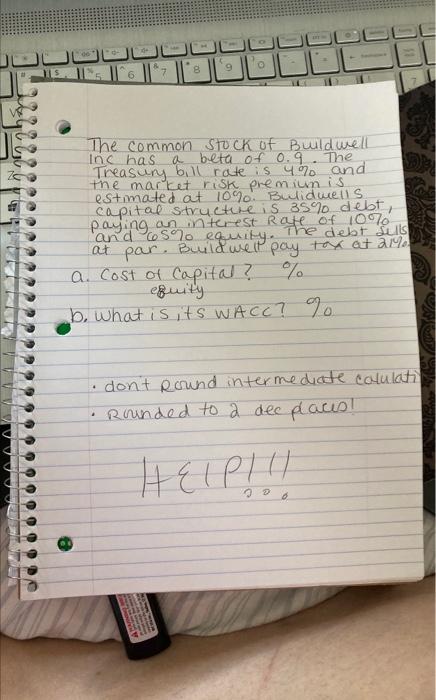 The common stock of Buildwell
Inc has a beta of 0.9. The
Treasury bill rate is 4% and
the market risk premium is
estimated at 10%. Buildwells
capital structure is 35% debt,
paying an interest Rate of 10%
and 65% equity. The debt sells
at par. Buildwell pay tax at 21%.
a. Cost of Capital? %
equity
b. What is its WACC? %
• don't Round intermediate calulati
• Rounded to 2 dec places!
HElP!!!